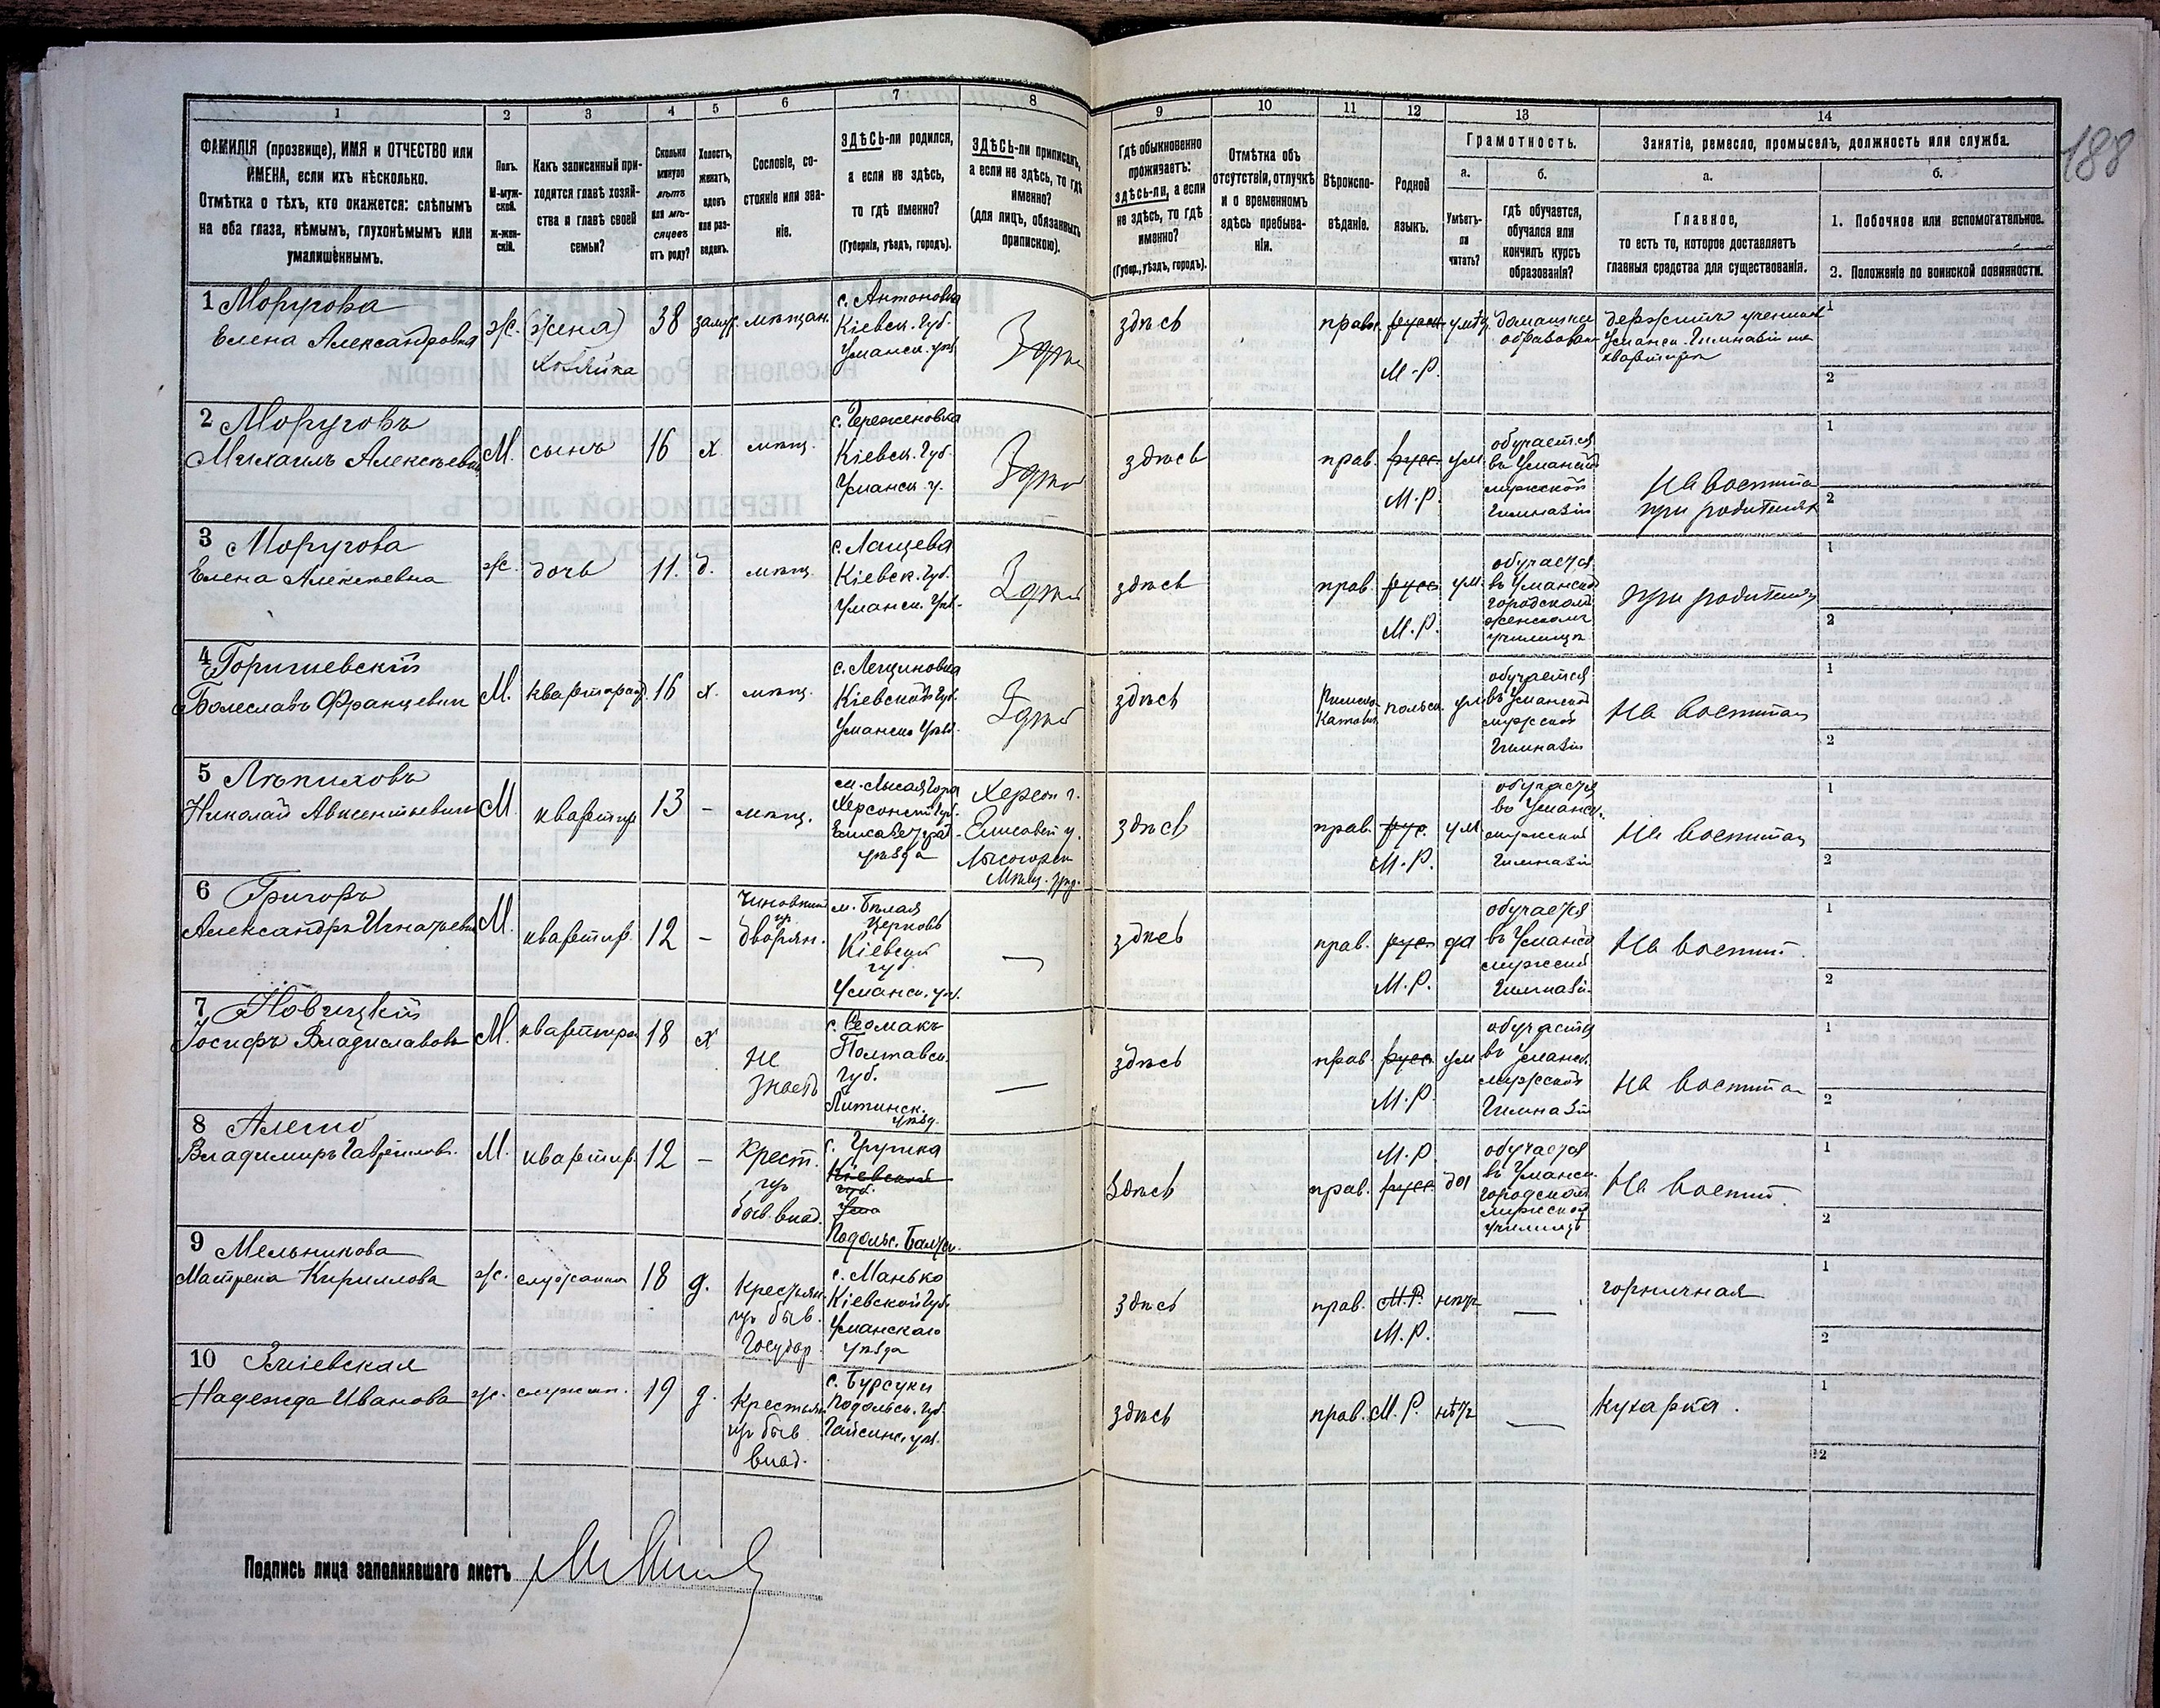 1 2 3 4 5 6 7 8 9 10 11 12 13 14
188
ФАМИЛІЯ (прозвище), ИМЯ и ОТЧЕСТВО или
ИМЕНА, если ихъ нѣсколько.
Отмѣтка о тѣхъ, кто окажется: слѣпымъ
на оба глаза, нѣмымъ, глухонѣмымъ или
умалишённымъ.
Полъ.
М-муж-
ской.
Ж-жен-
скій.
Какъ записанный при-
ходится главѣ хозяй-
ства и главѣ своей
семьи?
Сколько
минуло
лѣтъ
или мѣ-
сяцевъ
отъ роду?
Холостъ,
женатъ,
вдовъ
или раз-
веденъ.
Сословіе, со-
стояніе или зва-
ніе.
ЗДѢСЬ-ли родился,
а если не здѣсь,
то гдѣ именно?
(Губернія, уѣздъ, городъ).
ЗДѢСЬ-ли приписанъ,
а если не здѣсь, то гдѣ
именно?
(для лицъ, обязанныхъ
припискою).
Гдѣ обыкновенно
проживаетъ:
здѣсь-ли, а если
не здѣсь, то гдѣ
именно?
(Губер., уѣздъ, городъ).
Отмѣтка объ
отсутствіи, отлучкѣ
и о временномъ
здѣсь пребыва-
ніи.
Вѣроиспо-
вѣданіе.
Родной
языкъ.
Грамотность.
а.
Умѣетъ-
ли
читать?
б.
гдѣ обучается,
обучался или
кончилъ курсъ
образованія?
Занятіе, ремесло, промыселъ, должность или служба.
а.
Главное,
то есть то, которое доставляетъ
главныя средства для существованія.
б.
1. Побочное или вспомогательное.
2. Положеніе по воинской повинности.
1 Моругова
Елена Александровна
ж. (жена)
хозяйка
38 замуж. мѣщан.
с. Антоновка
Кіевск. Губ.
Уманск. уѣз.
здѣсь
здѣсь
прав. русск.
М-Р.
домашнее
образован
держитъ ученик
Уманск. Гимназіи на
квартирѣ
1
2
2 Моруговъ
Михаилъ Алексѣевичъ
М. сынъ 16 х. мѣщ.
Кіевск. Губ.
Уманск. у.
здѣсь
здѣсь
прав. русс. ум
М.Р.
обучается
въ Уманской
мужской
Гимназіи
На воспита
при родителях
1
2
3 Моругова
Елена Алексѣевна
ж. дочь 11. д. мѣщ.
с. Лащева
Кіевск. Губ.
Уманск. Уѣз.
здѣсь
здѣсь
прав. русс ум.
М.Р.
обучается
въ Уманском
городском
женском
училищѣ
при родителях
1
2
4
Болеславъ Францевичъ
М. квартирант. 16 х. мѣщ.
с. Лещиновка
Кіевской Губ.
Уманск. Уѣзд.
здѣсь
здѣсь
Римско
Катол. польск. ум
обучается
въ Уманской
мужской
Гимназіи
На воспитан
1
2
5 Лѣпиховъ
Николай Авксентьевичъ
М квартир 13 – мѣщ.
м. Лысая Гора
Херсонской Губ.
Елисаветград
уѣзда
Херсон г.
Елисавет у.
Лысогорск
Мѣщ. упр.
здѣсь
прав. рус. ум
М.Р.
обучается
въ Уманск.
мужской
Гимназіи
На воспитан
1
2
6 Григоръ
Александръ Игнатьевич
М. квартир. 12 –
Чиновник
из
дворян.
м. Бѣлая
Церковь
Кіевской
губ.
Уманск. уѣз.
—
здѣсь
прав. рус. да
М.Р.
обучается
въ Уманск
мужской
Гимназіи
На воспит.
1
2
7 Новицкій
Іосифъ Владиславовъ
М. квартиран 18 х
не
знаетъ
Полтавск.
губ.
уѣзд.
—
здѣсь
прав. русс ум
М.Р.
обучается
въ Уманск.
мужской
Гимназіи
На воспита
1
2
8
Владимиръ Гавриилов.
М. квартир. 12 –
Крест.
из
быв. влад.
с. Грушка
Кіевской
губ.
Ума
Подольс. Балтск.
здѣсь
прав.
М.Р.
русс. да
обучается
въ Уманск.
городском
мужском
училищѣ
На воспит.
1
2
9 Мельникова
Матрена Кириллова
ж. служанка 18 д.
Крестьян.
из быв.
Государ.
с. Манько
Кіевской Губ.
Уманскаго
уѣзда
здѣсь
прав. М.Р. нѣтъ
М.Р.
—
горничная
1
2
10 Зміевская
Надежда Иванова
ж. служан. 19 д.
Крестьян
из быв.
влад.
с. Бурсуки
Подольск. Губ.
Гайсинс. уѣз.
здѣсь
прав. М.Р. нѣтъ
—
Кухарка.
1
2
Подпись лица заполнявшаго листъ